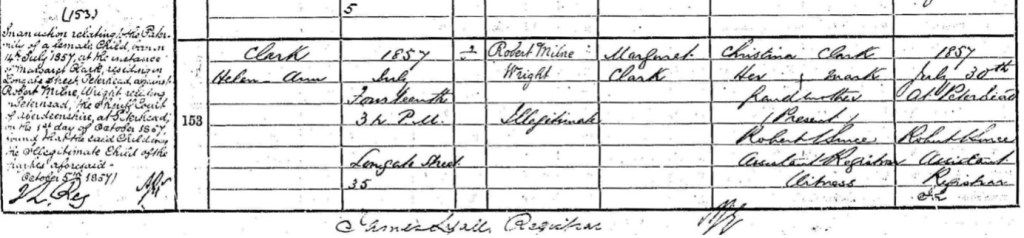 5
(153)
In an action relating to the Pater-
nity of a female Child, born on
14th July 1857, at the instance
of Margaret Clark, residing in
Longate Street, Peterhead, against
Robert Milne Wright residing
in Peterhead, the Sheriff Court
of Aberdeenshire, at Peterhead,
on the 1st day of October 1857
found that the said Child was
the Illegitimate Child of the
parties aforesaid -
October 5th 1857
J L, Reg
153
Clark
Helen Ann
1857
July
Fourteenth
3h P.M
Longate Street
35
Robert Milne
Wright
Illegitimate
Margaret
Clark
Christina Clark
Her mark
Grandmother
(Present)
Robert
Assistant Registrar
Witness
1857
July 30th
At Peterhead
Robert
Assistant
Registrar
James Lyall Registrar